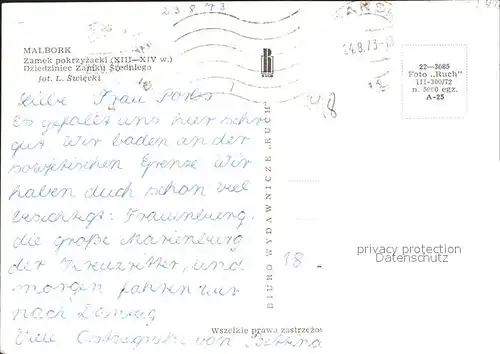 23.8.73
24.8.73
MALBORK
Zamek pokrzyżacki (XIII—XIV w.)
Dziedziniec Zamku Średniego
fot. L. Święcki
22—3085
Foto „Ruch"
III-300/72
n. 5000 egz.
A-25
Liebe Frau
Es gefällt uns hier sehr
gut Wir baden an der
sowjetischen Grenze Wir
haben auch schon viel
besichtigt: Frauenburg,
die große Marienburg
der Kreuzritter, und
morgen fahren wir
nach Danzig
Viele von Bettina
BIURO WYDAWNICZE „RUCH"
18
privacy protection
Datenschutz
Wszelkie prawa zastrzeżone